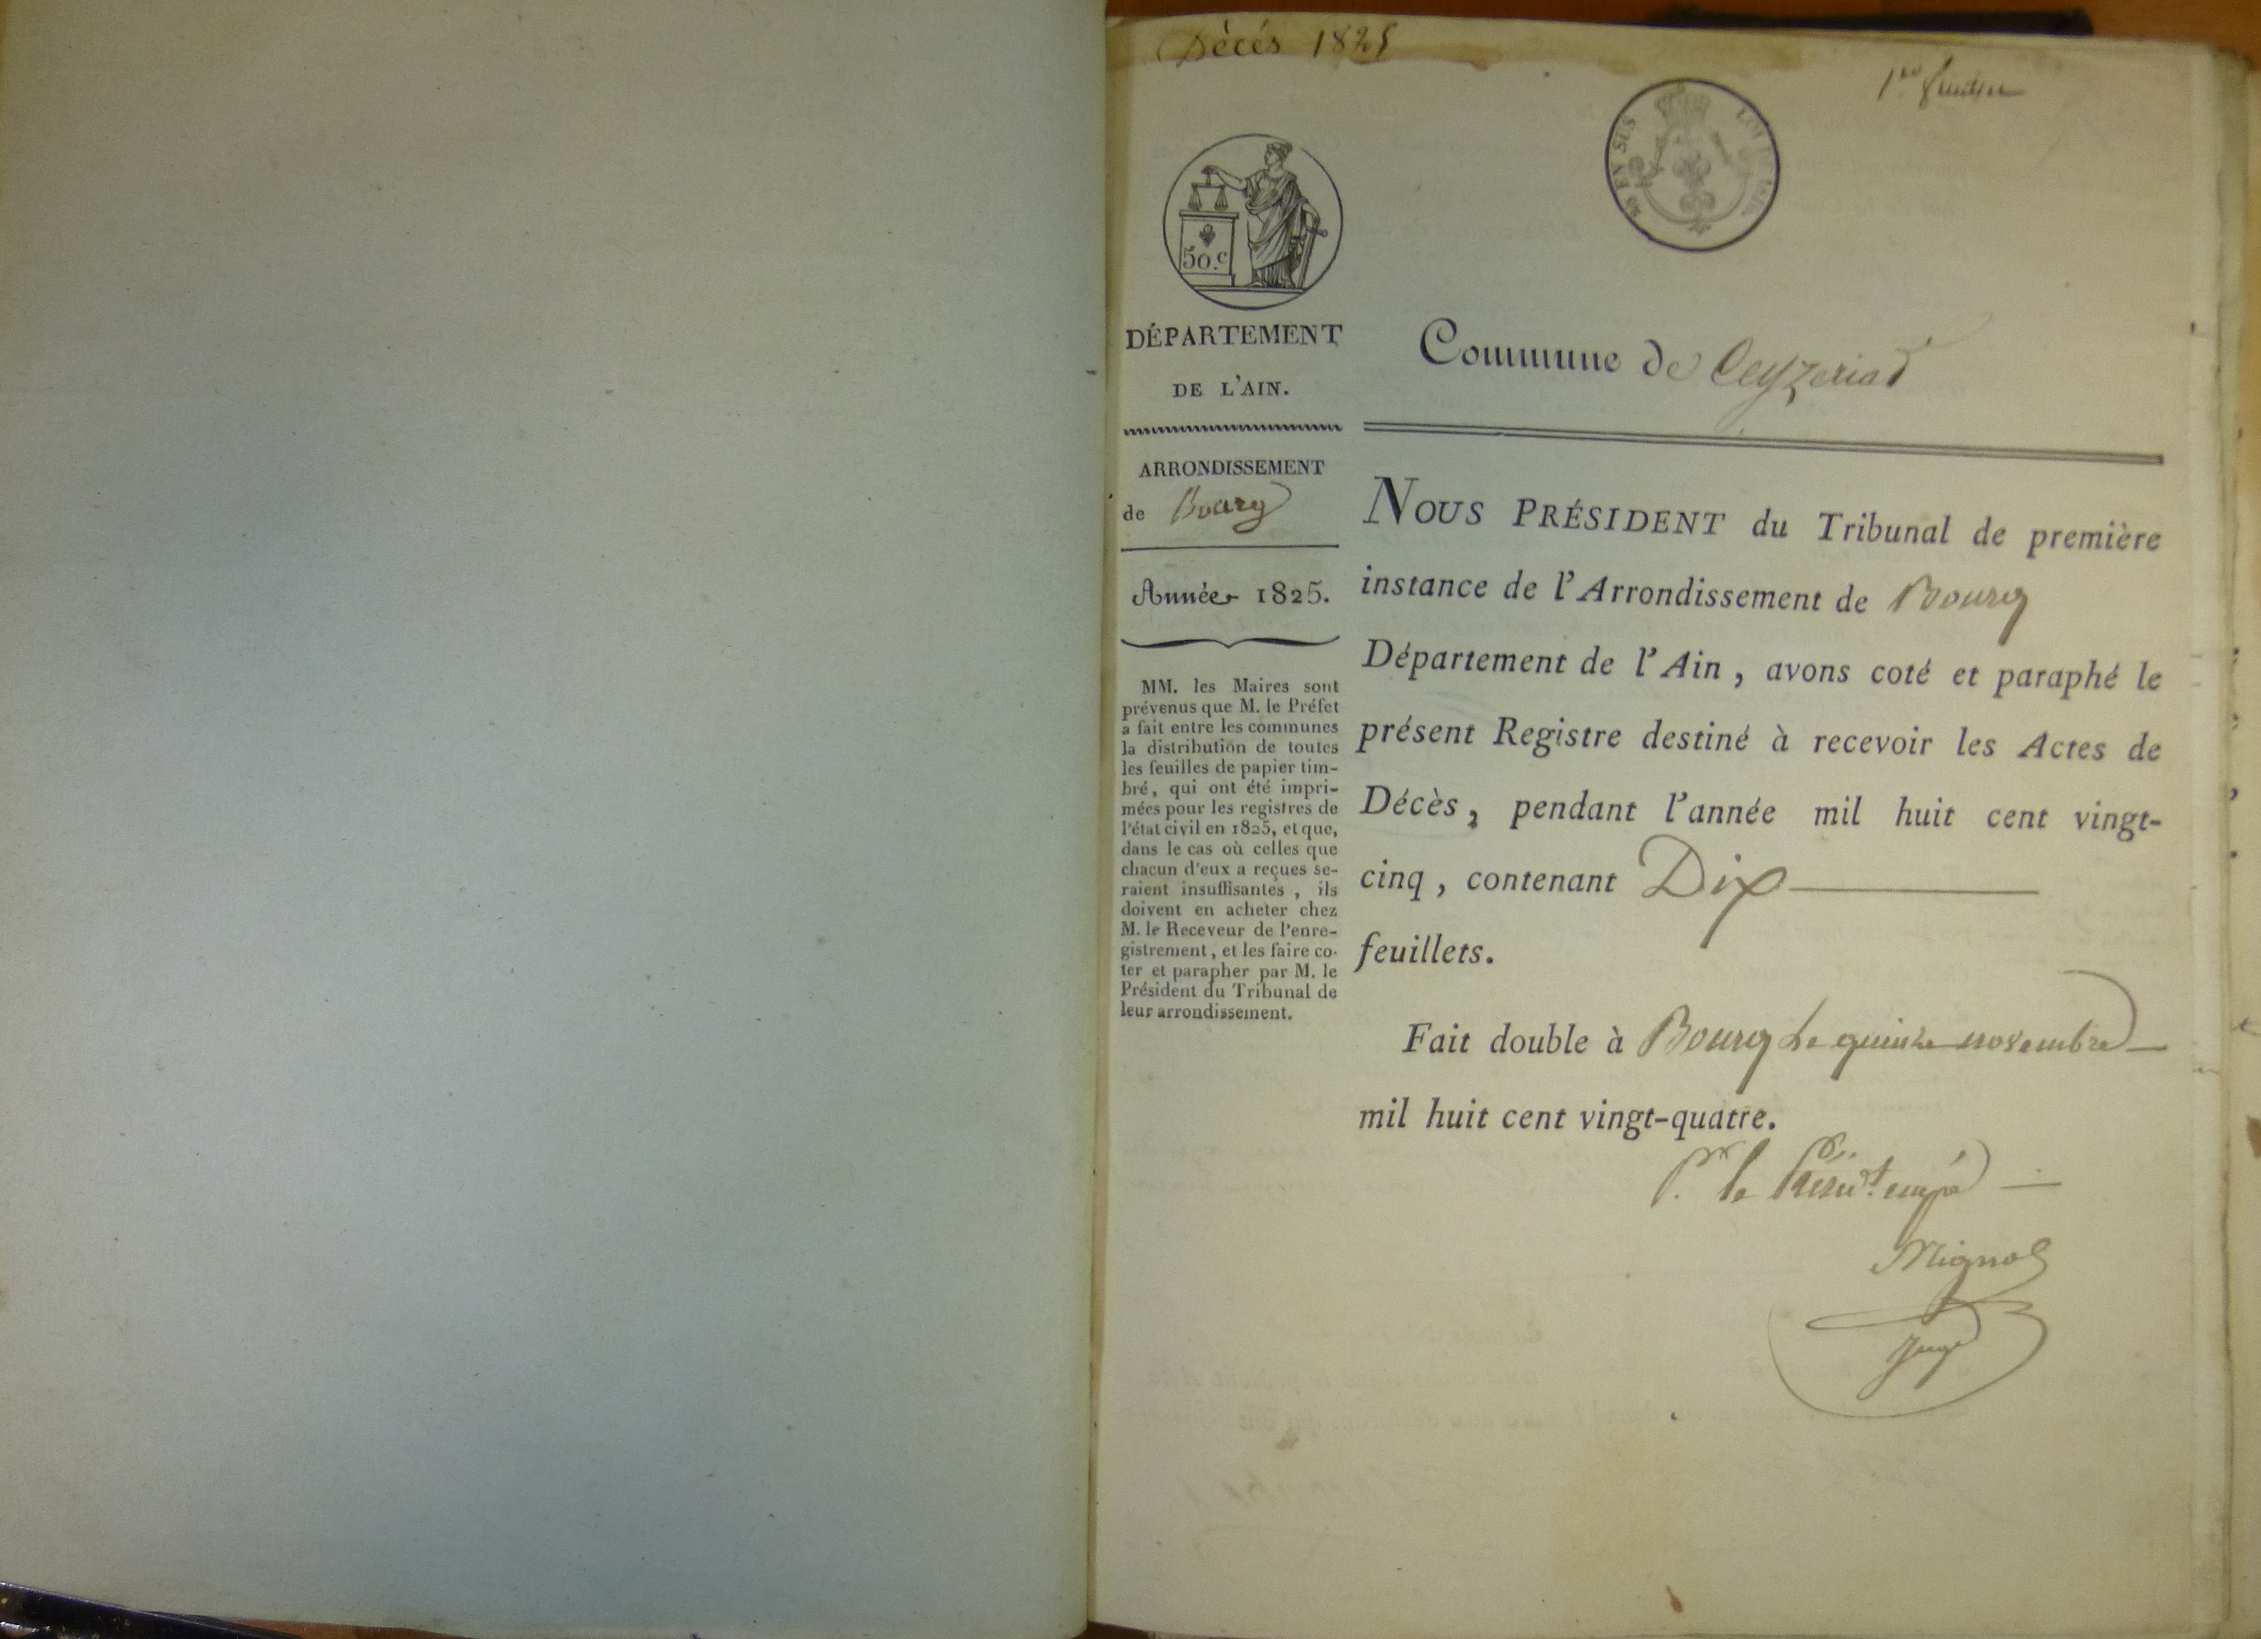 Décés 1825
1er feuillet
EN SUS
50.c
DÉPARTEMENT
DE L'AIN.
ARRONDISSEMENT
de Bourg
Année 1825.
MM. les Maires sont
prévenus que M. le Préfet
a fait entre les communes
la distribution de toutes
les feuilles de papier tim-
bré, qui ont été impri-
mées pour les registres de
l'état civil en 1825, et que,
dans le cas où celles que
chacun d'eux a reçues se-
raient insuffisantes, ils
doivent en acheter chez
M. le Receveur de l'enre-
gistrement, et les faire co-
ter et parapher par M. le
Président du Tribunal de
leur arrondissement.
Commune de Ceyzeriat
NOUS PRÉSIDENT du Tribunal de première
instance de l'Arrondissement de Bourg
Département de l'Ain, avons coté et paraphé le
présent Registre destiné à recevoir les Actes de
Décès, pendant l'année mil huit cent vingt-
cinq, contenant Dix
feuillets.
Fait double à Bourg le quinze novembre
mil huit cent vingt-quatre.
Pr. le Présidt. empé
Mignot
Juge